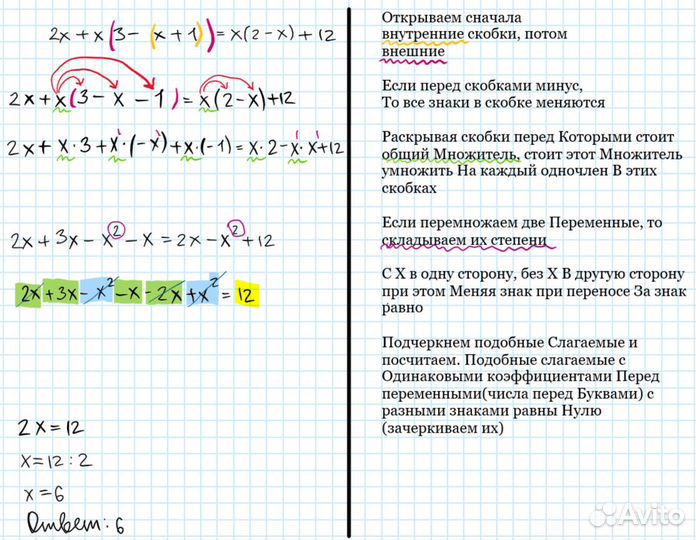 2x+x(3-(x+1))=x(2-x)+12
2x+x(3-x-1)=x(2-x)+12
2x+x·3+x¹·(-x¹)+x·(-1)=x·2-x¹·x¹+12
2x+3x-x²-x=2x-x²+12
2x+3x-x²-x-2x+x²=12
2x=12
x=12:2
x=6
Ответ: 6
Открываем сначала
внутренние скобки, потом
внешние
Если перед скобками минус,
То все знаки в скобке меняются
Раскрывая скобки перед Которыми стоит
общий Множитель, стоит этот Множитель
умножить На каждый одночлен В этих
скобках
Если перемножаем две Переменные, то
складываем их степени
С Х в одну сторону, без Х В другую сторону
при этом Меняя знак при переносе За знак
равно
Подчеркнем подобные Слагаемые и
посчитаем. Подобные слагаемые с
Одинаковыми коэффициентами Перед
переменными(числа перед Буквами) с
разными знаками равны Нулю
(зачеркиваем их)
Avito